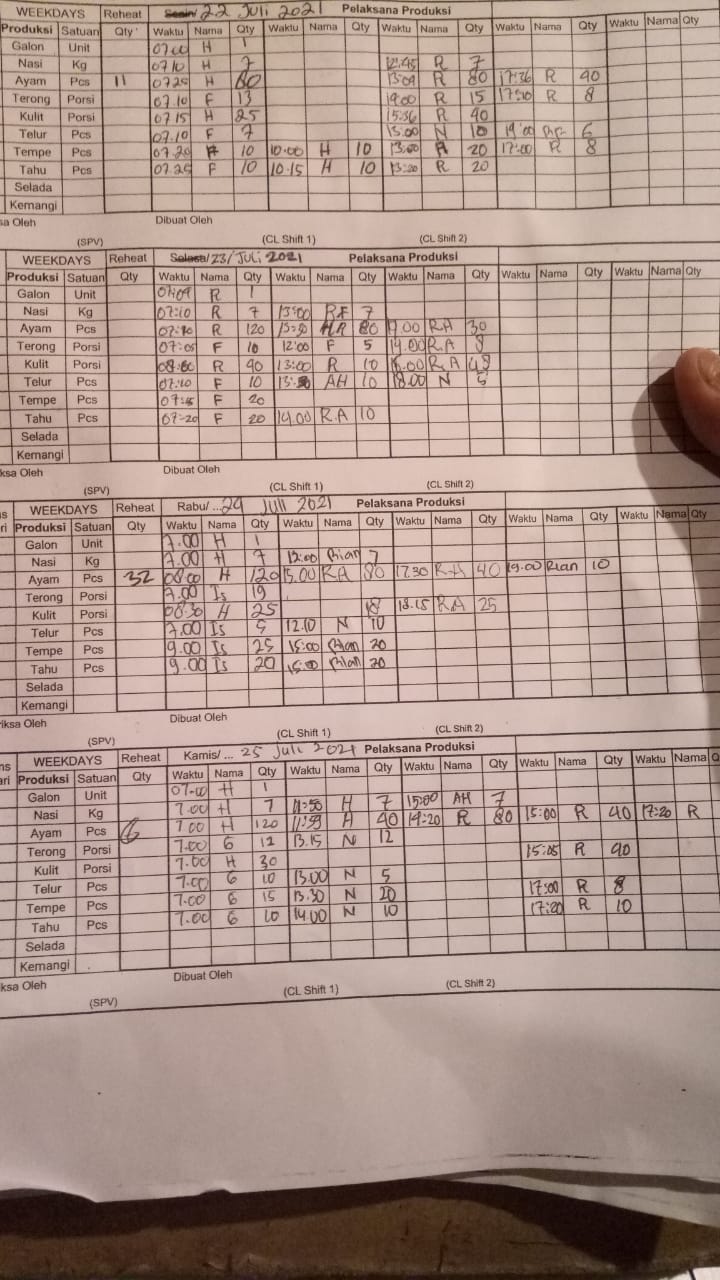 WEEKDAYS Reheat 22 Juli 2021 Pelaksana Produksi
Produksi Satuan Qty Waktu Nama Qty Waktu Nama Qty Waktu Nama Qty Waktu Nama Qty Waktu Nama Qty
Galon Unit 07.00 H 1
Nasi Kg 0710 H 7 12.45 R 7
Ayam Pcs 11 0720 H 80 17:36 R 40
Terong Porsi 07.10 F 13 R 15 R 8
Kulit Porsi 07 15 H 25 15:36 R 40
Telur Pcs 07.10 F 7 N 10 19:00 6
Tempe Pcs 07.20 10 10.00 H 10 20 17:00 R 8
Tahu Pcs 07.25 F 10 10.15 H 10 R 20
Selada
Kemangi
sa Oleh Dibuat Oleh
(SPV) (CL Shift 1) (CL Shift 2)
WEEKDAYS Reheat Selasa/23/Juli 2021 Pelaksana Produksi
Produksi Satuan Qty Waktu Nama Qty Waktu Nama Qty Waktu Nama Qty Waktu Nama Qty Waktu Nama Qty
Galon Unit 07:09 R 1
Nasi Kg 07:10 R 7 13:00 RF 7
Ayam Pcs R 120 80 RA 30
Terong Porsi 07:05 F 10 12:00 F 5 14.00 RA
Kulit Porsi R 40 13:00 R 10 RA
Telur Pcs 07:10 F 10 AH 10 18.00 N 5
Tempe Pcs F 20
Tahu Pcs 07-20 F 20 14.00 RA 10
Selada
Kemangi
ksa Oleh Dibuat Oleh
(SPV) (CL Shift 1) (CL Shift 2)
ns WEEKDAYS Reheat Rabu/ ... 24 Juli 2021 Pelaksana Produksi
ri Produksi Satuan Qty Waktu Nama Qty Waktu Nama Qty Waktu Nama Qty Waktu Nama Qty Waktu Nama Qty
Galon Unit 7.00 H 1
Nasi Kg 7.00 H 7 12:00 Rian 7
Ayam Pcs 32 08.00 H 120 15.00 RA 80 17.30 RA 40 19.00 Rian 10
Terong Porsi 7.00 Is 19
Kulit Porsi 08.30 H 25 18 18.15 RA 25
Telur Pcs 7.00 Is 5 12.10 N 10
Tempe Pcs 9.00 Is 25 15:00 Rian 20
Tahu Pcs 9.00 Is 20 15:00 Rian 20
Selada
Kemangi
iksa Oleh Dibuat Oleh
(SPV) (CL Shift 1) (CL Shift 2)
ns WEEKDAYS Reheat Kamis/ ... 25 Juli 2021 Pelaksana Produksi
ari Produksi Satuan Qty Waktu Nama Qty Waktu Nama Qty Waktu Nama Qty Waktu Nama Qty Waktu Nama
Galon Unit 07.00 H 1
Nasi Kg 7.00 H 7 11:50 H 7 15:00 AH 7
Ayam Pcs 6 7.00 H 120 11:55 H 40 14:20 R 80 15:00 R 40 17:20 R
Terong Porsi 7.00 6 12 13.15 N 12
Kulit Porsi 7.00 H 30 15:05 R 40
Telur Pcs 7.00 6 10 13.00 N 5
Tempe Pcs 7.00 6 15 13.30 N 20 17:00 R 8
Tahu Pcs 7.00 6 10 14.00 N 10 17:20 R 10
Selada
Kemangi
ksa Oleh Dibuat Oleh
(SPV) (CL Shift 1) (CL Shift 2)